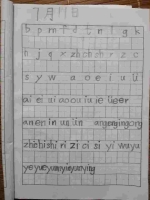 7月11日
b p m f d t n l g k
b j q x zh ch sh r z c
s y w a o e i u ü
ai ei ui ao ou iu ie üe er
an en in un ün ang eng ing ong
zhi chi shi ri zi ci si yi wu yu
ye yue yuan yin yun ying